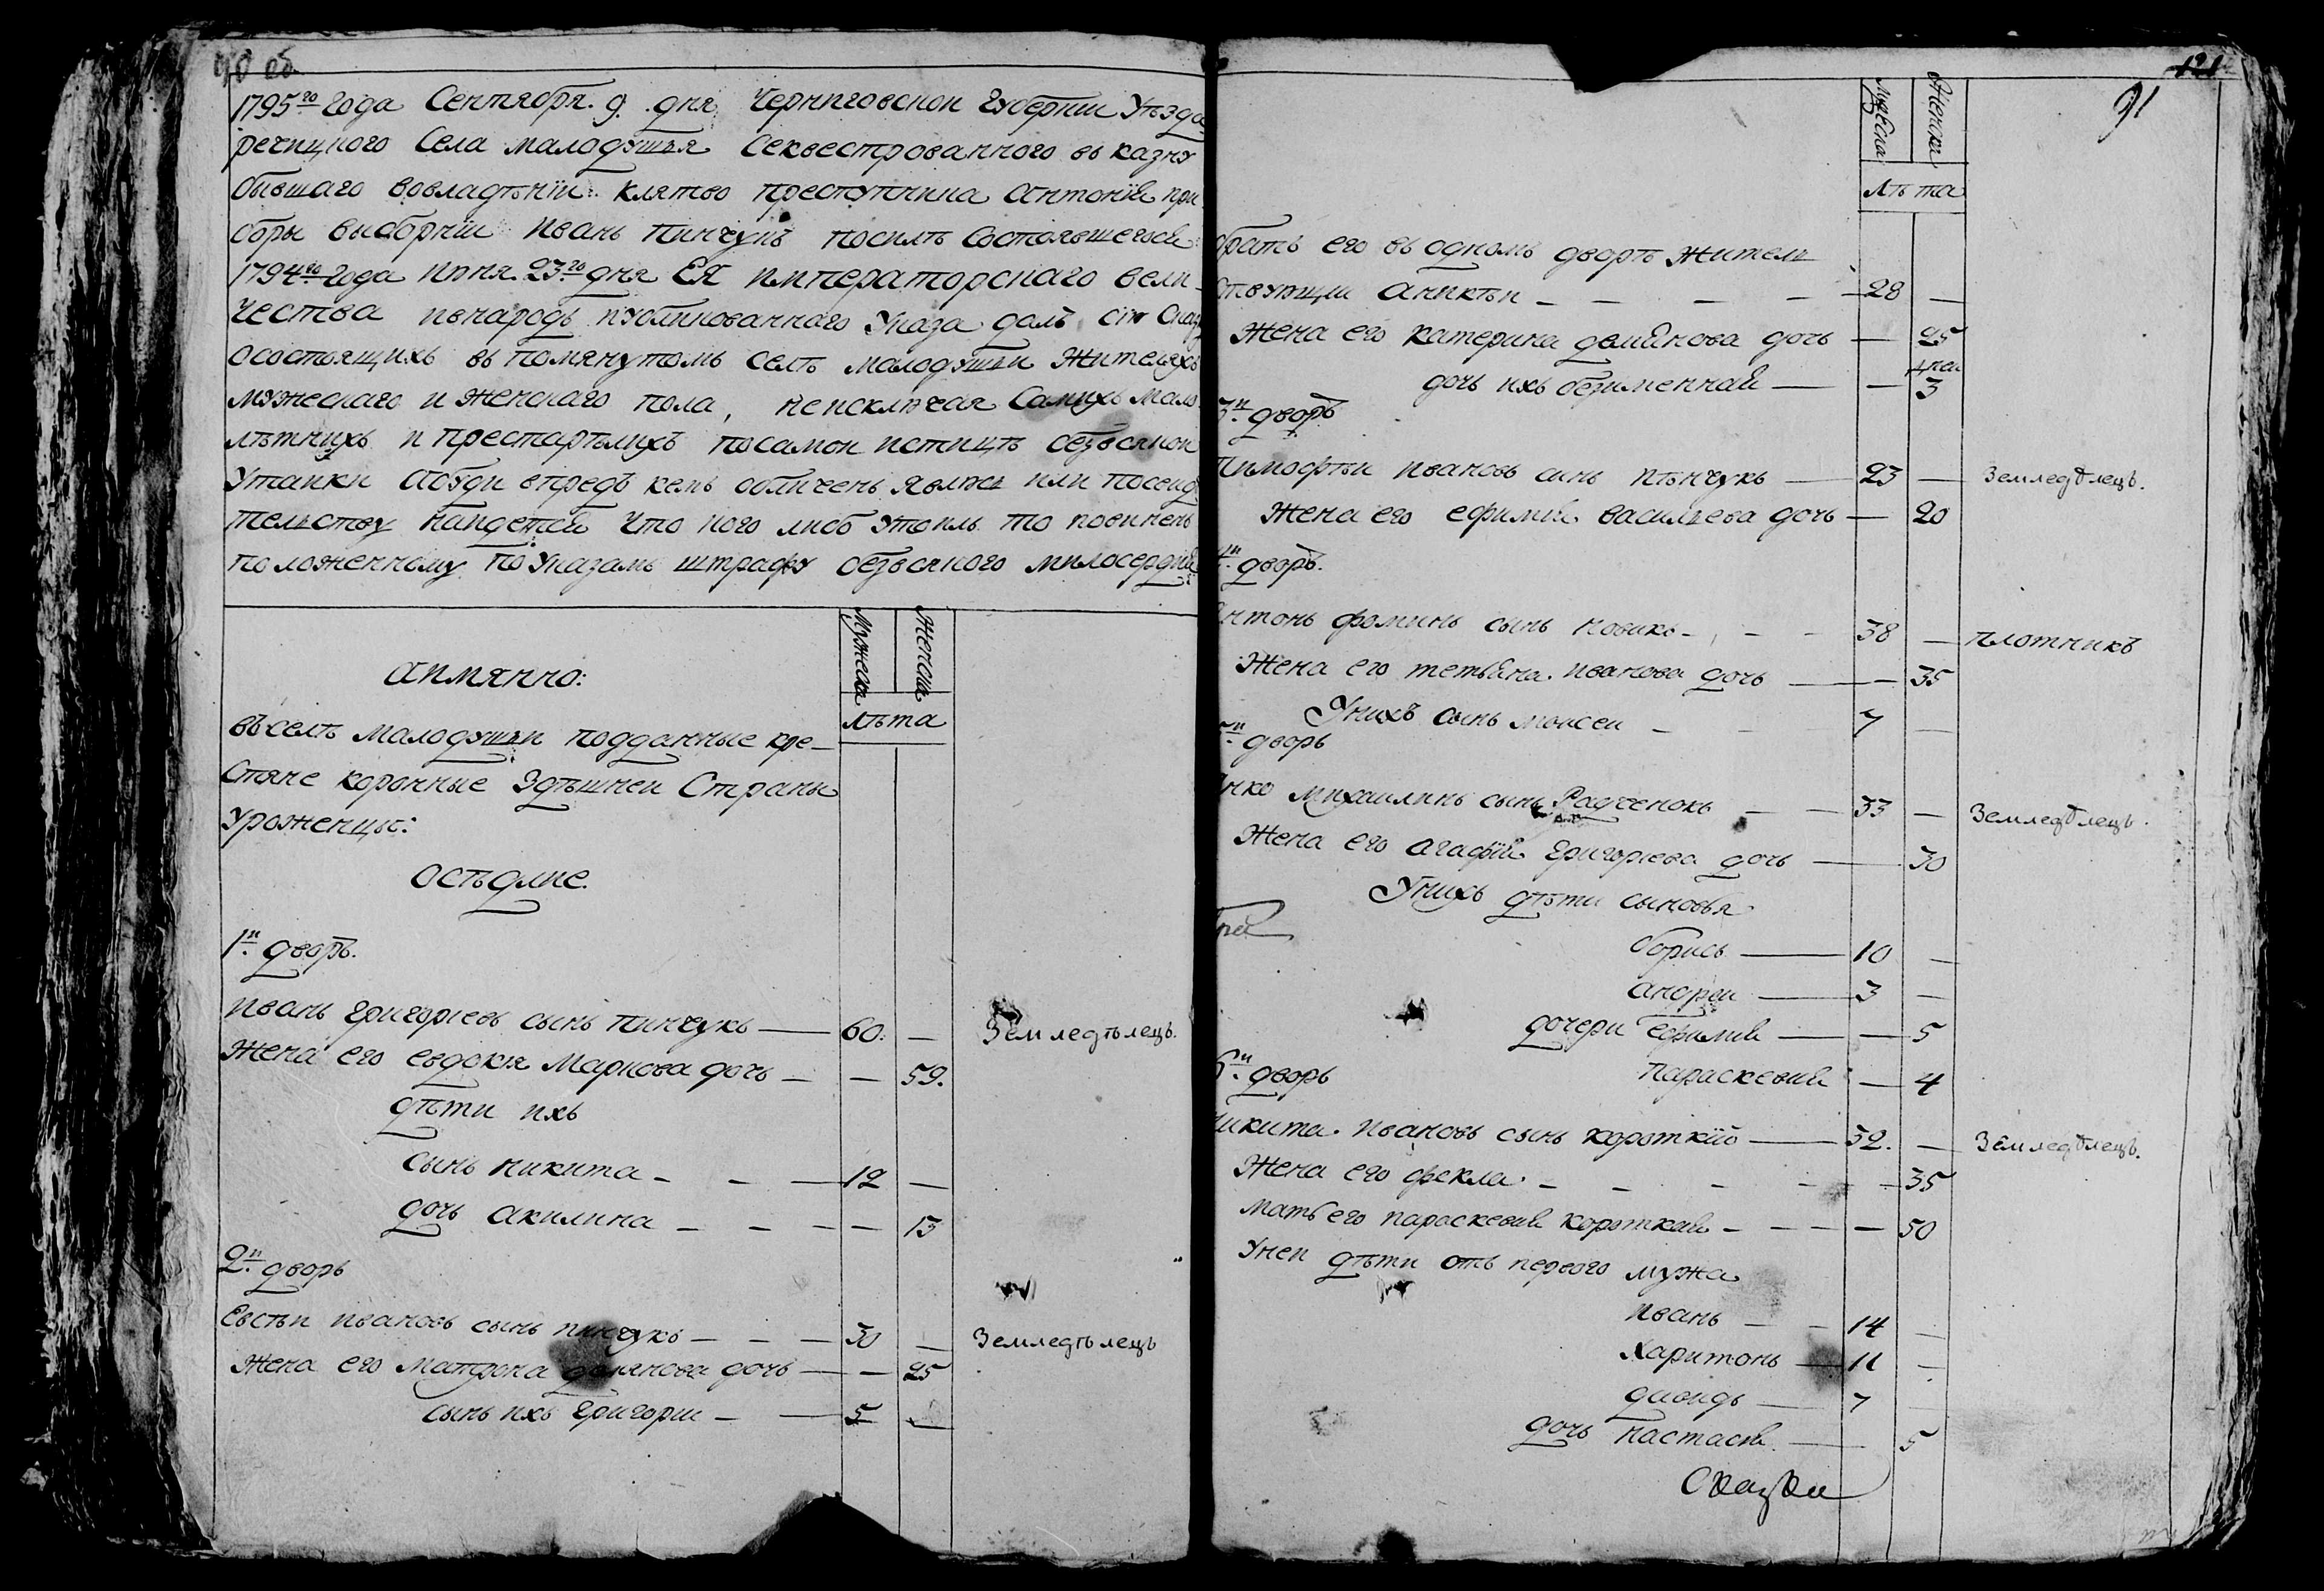 90 об
1795го года Сентября 9 дня Черниговской Губернии Уѣзда
речицкого Села малодушья Секвестрованного въ казну
бывшаго вовладѣніи клятво преступника Антонія при
боры выборній Иванъ Пинчукъ посилѣ Состоявшегося
1794го года Июня 23го дня ЕЯ императорскаго вели-
чества ивнародъ публикованнаго Указа далъ сію Сказ
осостоящихъ въ помянутомъ селѣ малодушьи Жителяхъ
мужескаго и женскаго пола, неисключая Самихъ мало
лѣтнихъ и престарѣлихъ посамой истинцѣ безвсякой
Утайки Абуди впредъ кемъ обличенъ явлюсь или посвид
тельству найдется Что кого либо утоилъ то повиненъ
положенному по Указамъ штрафу безвсякого милосердия
Мужеска
Женска
лѣта
аимянно:
въ селѣ Малодушьи подданные кре-
стяне коронные Здѣшней Страны
Уроженцы:
осѣдлые.
1й дворъ.
Иванъ Григориевъ сынъ Пинчукъ — 60. — Земледѣлецъ.
Жена его евдокия Маркова дочь — — 59.
дѣти ихъ
сынъ никита — 12 —
дочь акилина — — 13
2й дворъ
Евстѣй ивановъ сынъ пинчукъ — 30 — Земледѣлецъ
Жена его Матрона демянова дочь — — 25
сынъ ихъ Григорий — 5 —
121
91
Мужеска
Женска
лѣта
братъ его въ одномъ дворѣ жителъ
ствующий Аникѣй — 28 —
Жена его катерина демянова дочь — 25
дочь ихъ безименная — — 3
3й дворъ
Тимофѣй ивановъ синъ пѣнчукъ — 23 — Земледѣлецъ.
Жена его ефимия василиева дочь — 20
4й дворъ.
Антонъ фоминъ сынъ новикъ — 38 — плотникъ
Жена его тетьяна иванова дочь — — 35
Унихъ сынъ моисей — 7 —
5й дворъ
Янко михаилинъ сынъ Радченокъ — 33 — Земледѣлецъ.
Жена его агафия Григориева дочь — 30
Унихъ дѣти сыновья
борисъ — 10 —
андрей — 3 —
дочери ефимия — — 5
параскевия — 4
6й дворъ
Никита ивановъ сынъ короткий — 32. — Земледѣлецъ.
Жена его фекла — — 35
Мать его параскевия короткая — — 50
Уней дѣти отъ первого мужа
иванъ — 14 —
харитонъ — 11 —
давидъ — 7
дочь настасия — 5
Сказки